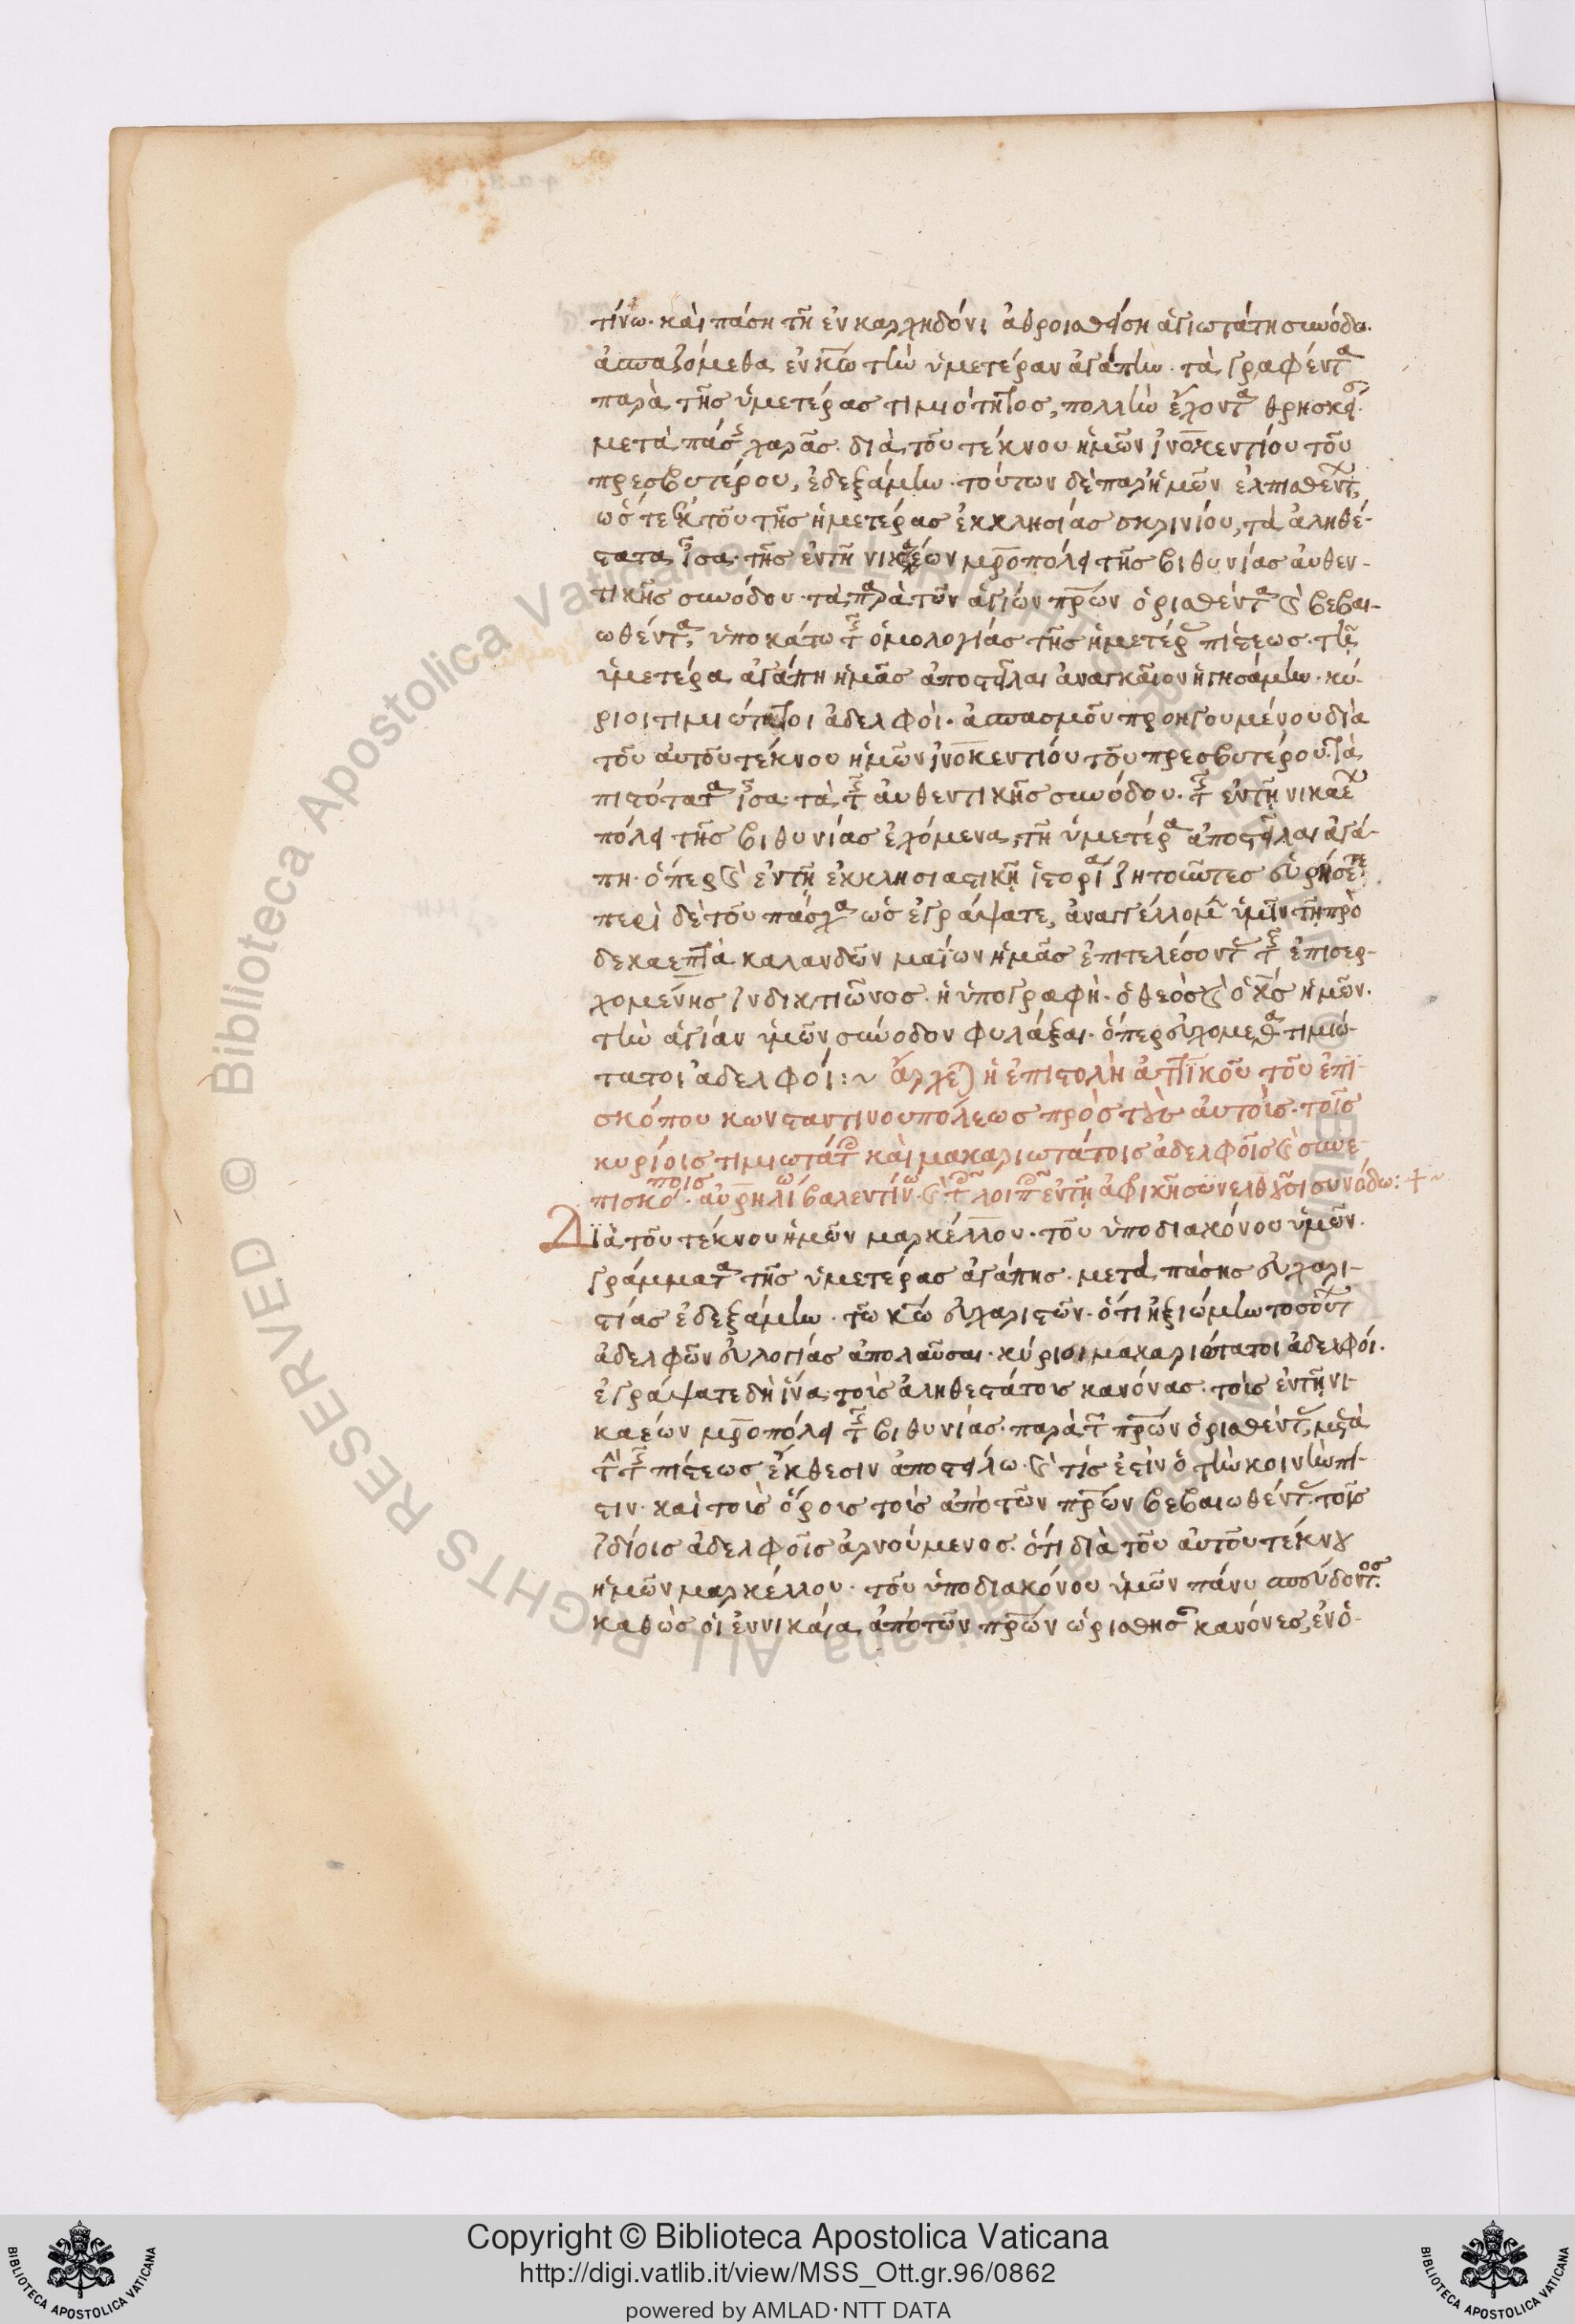 τίνω· καὶ πάση τῆ ἐν καρχηδόνι ἀθροισθείση ἁγιωτάτη συνόδω·
ἀσπαζόμεθα ἐν κ͞ω τὴν ὑμετέραν ἀγάπην· τὰ γραφέντα
παρὰ τῆς ὑμετέρας τιμιότητος, πολλὴν ἔχοντα θρησκείας·
μετὰ πάσης χαρᾶς· διὰ τοῦ τέκνου ἡμῶν ἰνοκεντίου τοῦ
πρεσβυτέρου, ἐδεξάμην· τούτων δὲ παρ' ἡμῶν ἐλπισθέντων
ὥστε ἐκ τοῦ τῆς ἡμετέρας ἐκκλησίας σκρινίου, τὰ ἀληθέ-
στατα ἶσα· τῆς ἐν τῆ νικαέων μρ͞οπόλει τῆς βιθυνίας αὐθεν-
τικῆς συνόδου· τὰ παρὰ τῶν ἁγίων πρ͞ων ὁρισθέντα καὶ βεβαι-
ωθέντα, ὑποκάτω τῆς ὁμολογίας τῆς ἡμετέρας πίστεως· τῆ
ὑμετέρα ἀγάπη ἡμᾶς ἀποστεῖλαι ἀναγκαῖον ἡγησάμην· κύ-
ριοι τιμιώτατοι ἀδελφοὶ· ἀσπασμοῦ προηγουμένου διὰ
τοῦ αὐτοῦ τέκνου ἡμῶν ἰνοκεντίου τοῦ πρεσβυτέρου· τὰ
πιστότατα ἶσα· τὰ τῆς αὐθεντικῆς συνόδου· τῆς ἐν τῆ νικαέων
πόλει τῆς βιθυνίας ἐχόμενα, τῆ ὑμετέρα ἀποστεῖλαι ἀγά-
πη· ὅπερ καὶ ἐν τῆ ἐκκλησιαστικῆ ἱστορία ζητοῦντες εὑρήσετε·
περὶ δὲ τοῦ πάσχα ὡς ἐγράψατε, ἀναγγέλλομεν ὑμῖν τῆ πρὸ
δεκαεπτὰ καλανδῶν μαΐων ἡμᾶς ἐπιτελέσοντας τῆς ἐπισερ-
χομένης ἰνδικτιῶνος· ἡ ὑπογραφὴ· ὁ θεὸς καὶ ὁ χ͞ς ἡμῶν·
τὴν ἁγίαν ὑμῶν σύνοδον φυλάξαι· ὅπερ εὐχόμεθα τιμιώ-
τατοι ἀδελφοί :~ ἄρχεται ἡ ἐπιστολὴ ἀττϊκοῦ τοῦ ἐπι-
σκόπου κωνσταντινουπόλεως πρὸς τοὺς αὐτοὺς· τοῖς
κυρίοις τιμιωτάτοις καὶ μακαριωτάτοις ἀδελφοῖς καὶ συνε-
πισκόποις· αὐρηλίω βαλεντίνω· καὶ τοῖς λοιποῖς ἐν τῆ ἀφρικῆ συνελθοῦσι συνόδω: +~
Διὰ τοῦ τέκνου ἡμῶν μαρκέλλου· τοῦ ὑποδιακόνου ὑμῶν·
γράμματα τῆς ὑμετέρας ἀγάπης· μετὰ πάσης εὐχαρι-
στίας ἐδεξάμην· τῶ κ͞ω εὐχαριστῶν· ὅτι ἠξιώμην τοσούτων
ἀδελφῶν εὐλογίας ἀπολαῦσαι· κύριοι μακαριώτατοι ἀδελφοί·
ἐγράψατε δὴ ἵνα τοὺς ἀληθεστάτους κανόνας· τοὺς ἐν τῆ νι-
καέων μρ͞οπόλει τῆς βιθυνίας· παρὰ τῶν πρ͞ων ὁρισθέντας, μετὰ
τὴν τῆς πίστεως ἔκθεσιν ἀποστείλω· καὶ τίς ἐστὶν ὁ τὴν κοινὴν πί-
στιν· καὶ τοὺς ὅρους τοὺς ἀπὸ τῶν πρ͞ων βεβαιωθέντας· τοῖς
ἰδίοις ἀδελφοῖς ἀρνούμενος· ὅτι διὰ τοῦ αὐτοῦ τέκνου
ἡμῶν μαρκέλλου· τοῦ ὑποδιακόνου ὑμῶν πάνυ σπεύδοντος·
καθὼς οἱ ἐν νικαία ἀπὸ τῶν πρ͞ων ὡρίσθησαν κανόνες, ἐν ὁ-
Copyright © Biblioteca Apostolica Vaticana
http://digi.vatlib.it/view/MSS_Ott.gr.96/0862
powered by AMLAD·NTT DATA
BIBLIOTECA APOSTOLICA VATICANA
BIBLIOTECA APOSTOLICA VATICANA
© Biblioteca Apostolica Vaticana ALL RIGHTS RESERVED